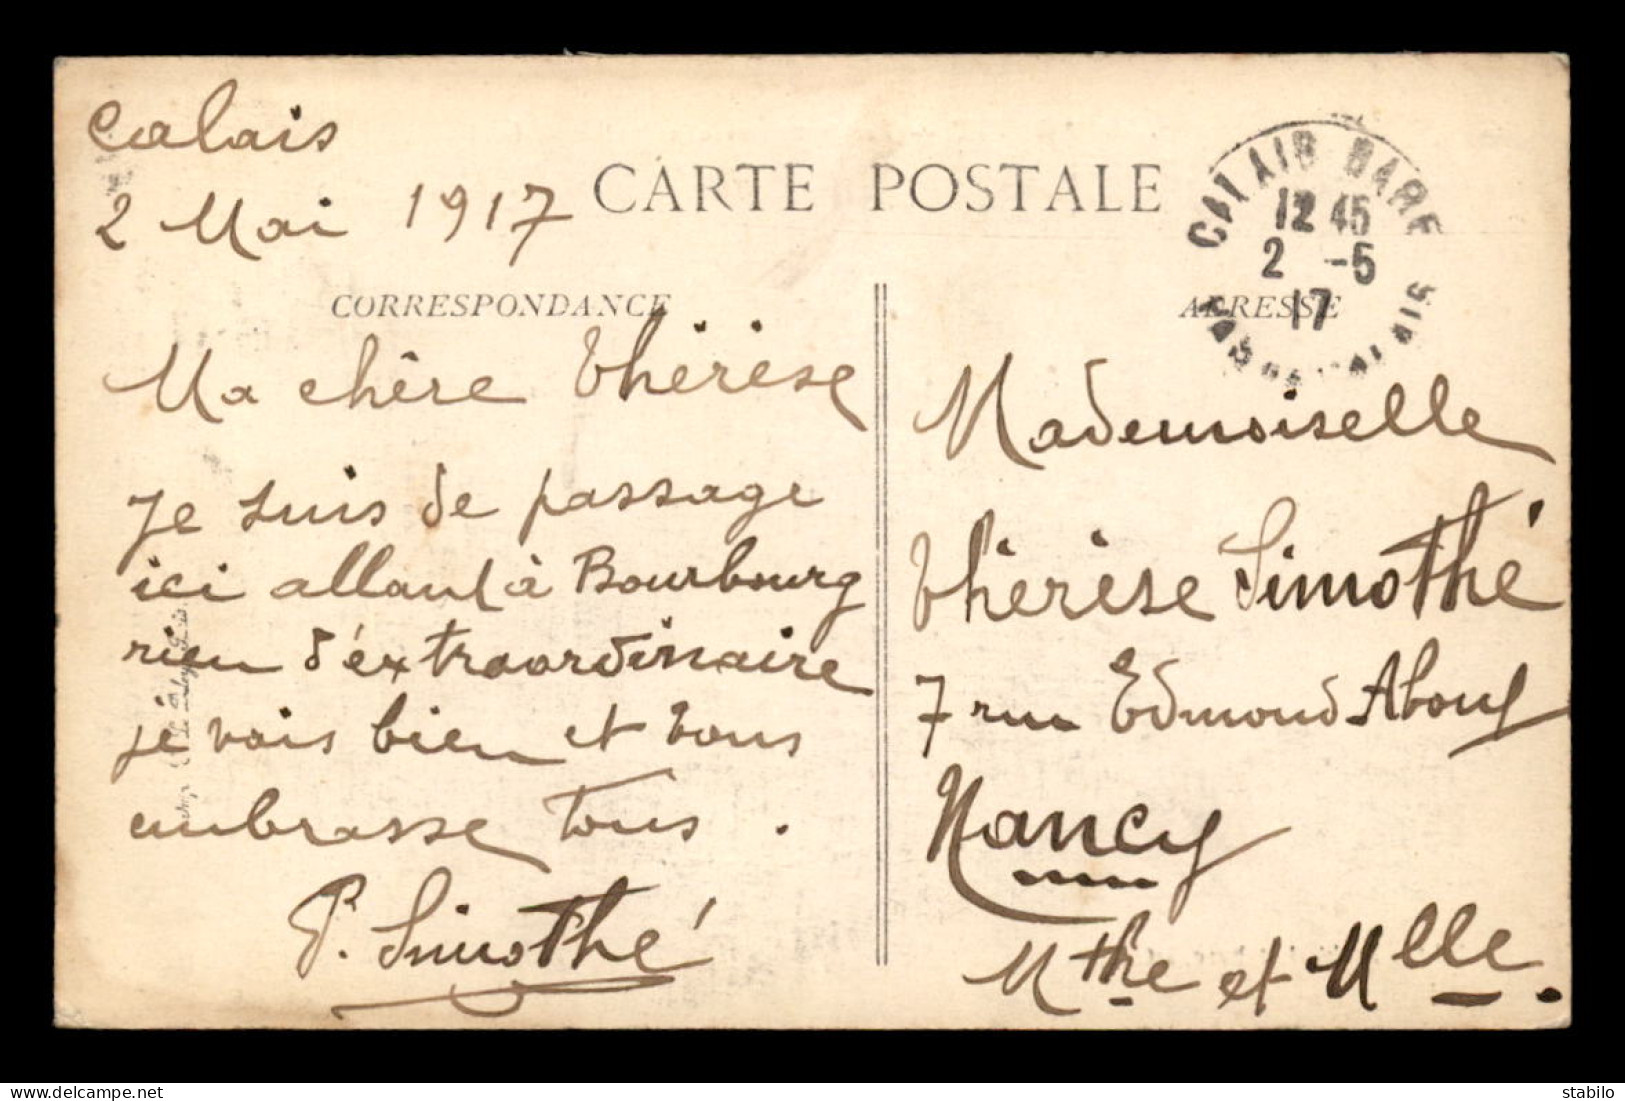 Calais
2 Mai 1917
CARTE POSTALE
12 45
2 -5
17
CORRESPONDANCE
ADRESSE
Ma chère Thérèse
Je suis de passage
ici allant à Bourbourg
rien d'extraordinaire
je vais bien et vous
embrasse tous.
P. Simothé
Mademoiselle
Thérèse Simothé
7 rue Edmond About
Nancy
Mthe et Mlle.
stabilo
delcampe.net